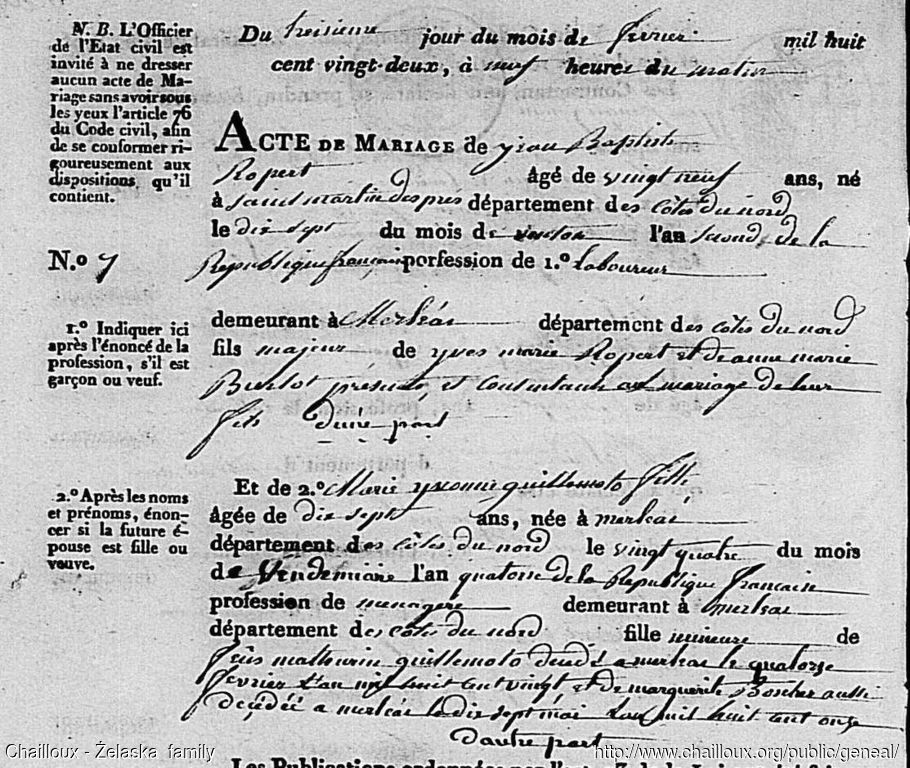 N. B. L'Officier
de l'Etat civil est
invité à ne dresser
aucun acte de Ma-
riage sans avoir sous
les yeux l'article 76
du Code civil, afin
de se conformer ri-
goureusement aux
dispositions qu'il
contient.
Du treisieme jour du mois de fevrier mil huit
cent vingt-deux, à neuf heures du matin
ACTE DE MARIAGE de jean Baptiste
Ropert âgé de vingt neuf ans, né
à saint martin des pres département des côtes du nord
le dix sept du mois de l'an second de la
N.º 7
Republique française porfession de 1.º Laboureur
1.º Indiquer ici
après l'énoncé de la
profession, s'il est
garçon ou veuf.
demeurant à Merléac département des côtes du nord
fils majeur de yves marie Ropert et de anne marie
présents et Consentants au mariage de leur
fils d'une part
2.º Après les noms
et prénoms, énon-
cer si la future é-
pouse est fille ou
veuve.
Et de 2.º Marie yvonne guillemoto fille
Âgée de dix sept ans, née à merleac
département des côtes du nord le vingt quatre du mois
de Vendemiaire l'an quatorse de la Republique francaise
profession de menagere demeurant à merleac
département des côtes du nord fille mineure de
feüs mathurin guillemoto decedé a merleac le quatorze
fevrier L'an mil huit cent vingt et de marguerite Boscher aussi
decédéé a merleac le dix sept mai L'an mil huit cent onze
d'autre part
Chailloux - Želaska family
http://www.chailloux.org/public/geneal/